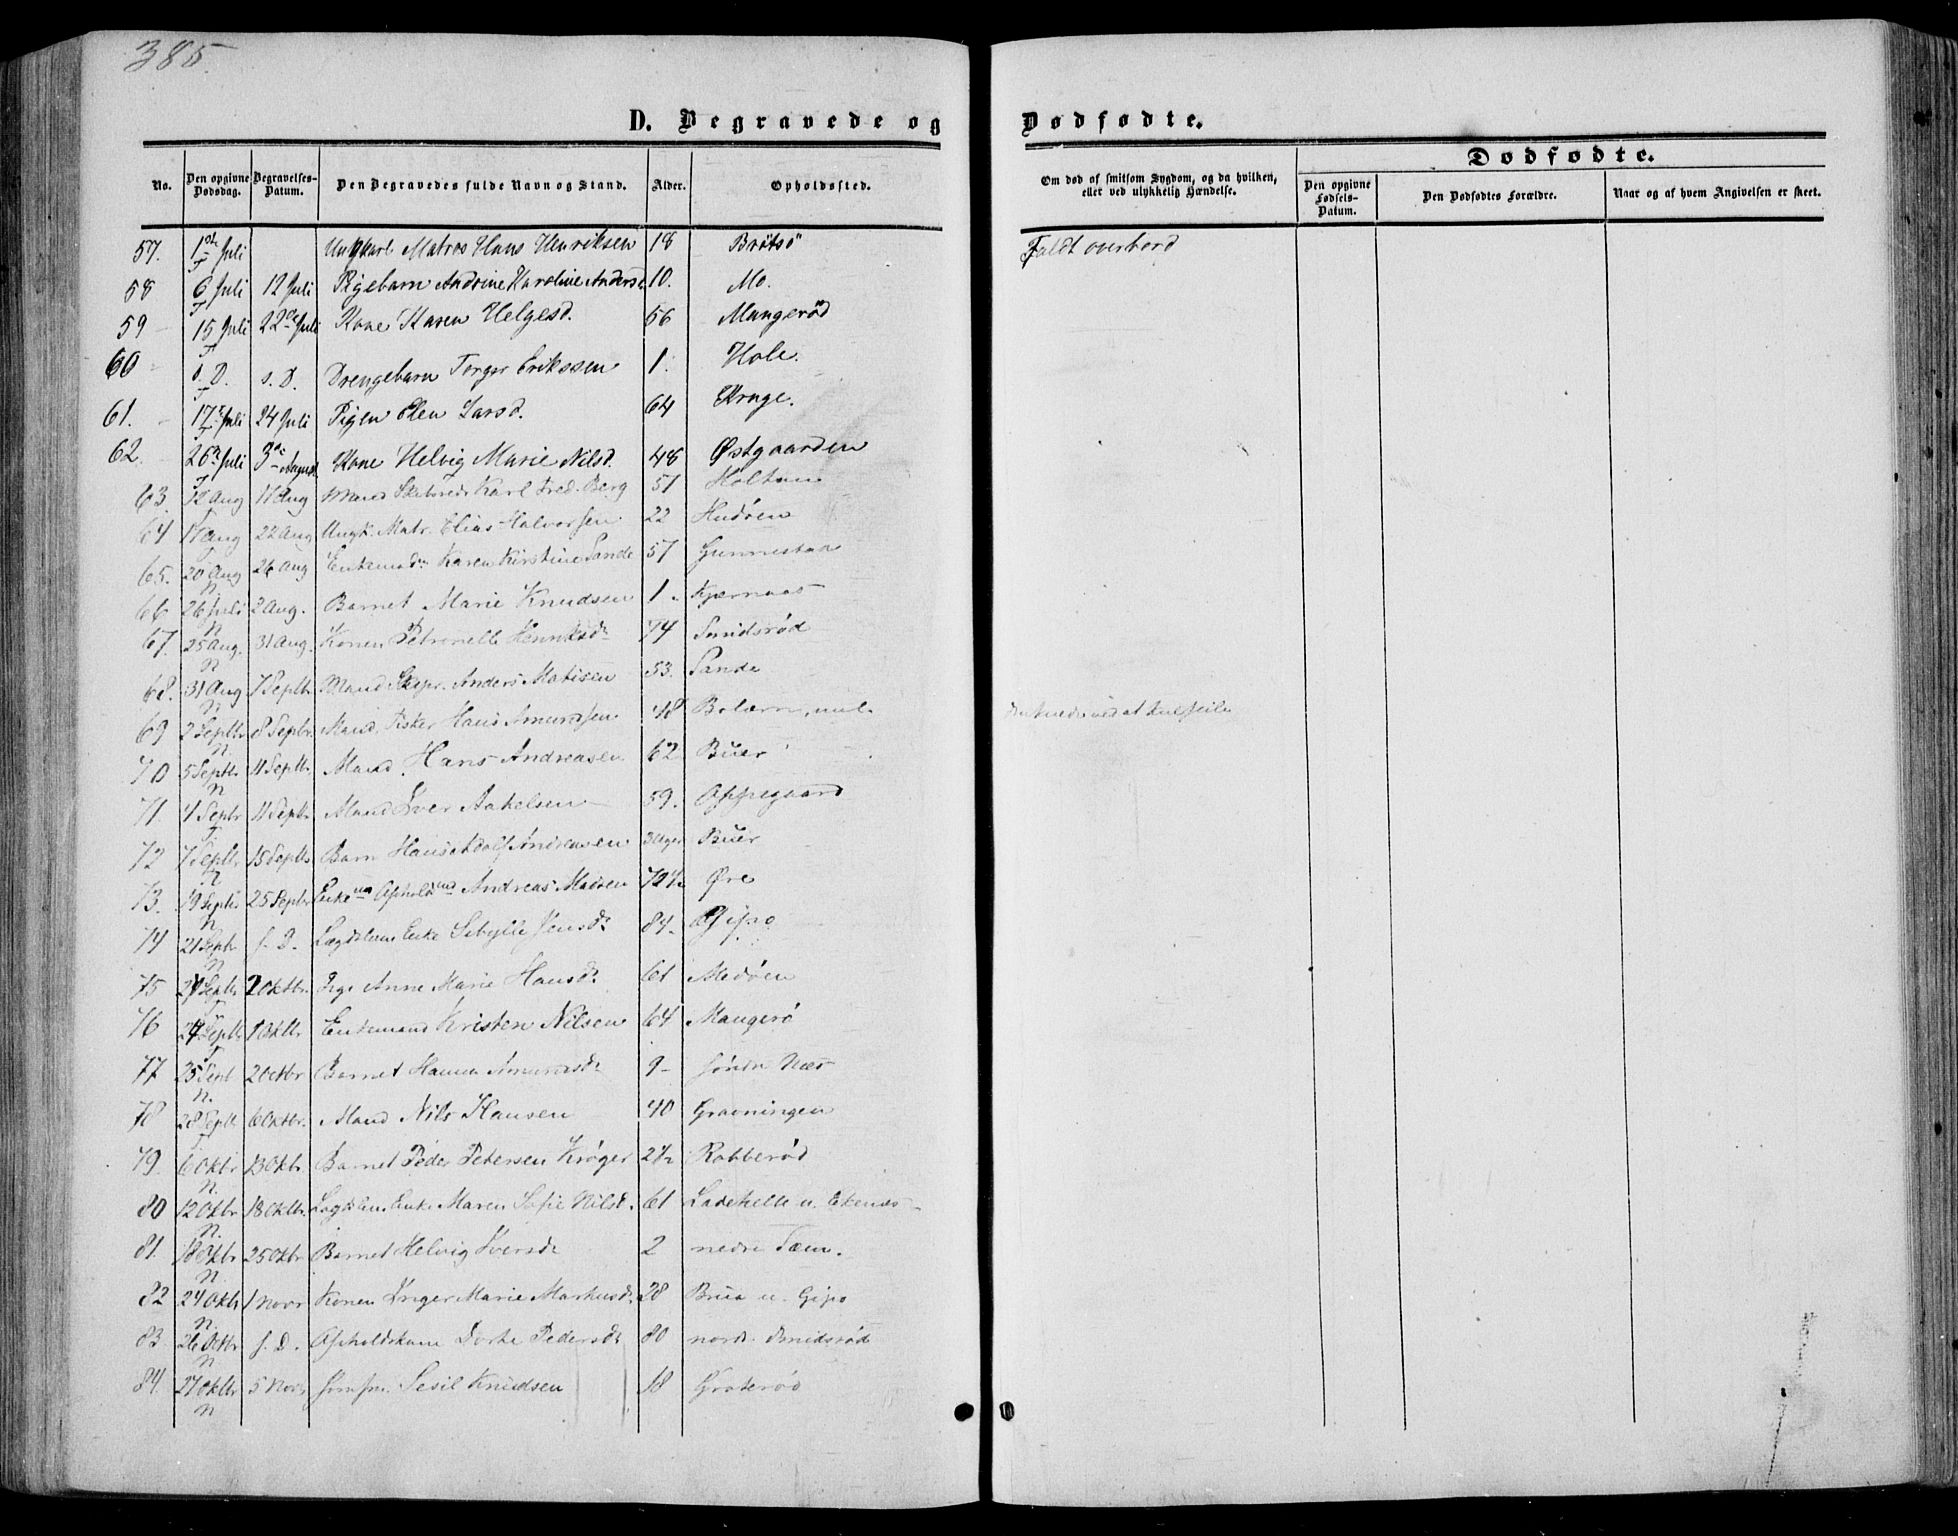 385
D. Begravede og Dødfødte.
No. Den opgivne Dødsdag. Begravelses-Datum. Den Begravedes fulde Navn og Stand. Alder. Opholdssted.
Om død af smitsom Sygdom, og da hvilken, eller ved ulykkelig Hændelse.
Dødfødte.
Den opgivne Fødsels-Datum. Den Dødfødtes Forældre. Naar og af hvem Angivelsen er skeet.
57. 1 Juli Ungkarl Matros Hans Henriksen 18 Brøtsö Faldt overbord
58 6 Juli 12 Juli Pigebarn Andrine Karoline Andersd 10. Mo.
59 15 Juli 22de Juli Kone Karen Helgesd. 56 Mangerød
60 s. D. s. D. Drengebarn Torger Erikssen 1. Hole.
61. 17 Juli 24 Juli Pigen Elen Larsd. 64 Kruge.
62. 26 Juli 3de August Kone Helvig Marie Nilsd. 48 Østgaarden
63. 12 Aug 17 Aug Mand Karl Fred. Berg 51 Holtan
64 17 Aug 22 Aug Ungk. Matr. Elias Halvorsen 22 Hudøen
65. 20 Aug 26 Aug Karen Kirstine Sande 57 Gunnestad
66 26 Juli 2 Aug. Barnet Marie Knudsen 1. Kjærnaas
67. 25 Aug. 31 Aug. Konen Petronelle Henriksd. 74 Smidsrød
68. 31 Aug 7 Septbr Mand Skipr. Anders Matisen 53. Sande
69 2 Septbr 8 Septbr. Mand Fisker Hans Amundsen 48 Bolærne
70 5 Septbr 11 Septbr. Mand Hans Andreasen 62 Buer
71. 4 Septbr 11 Septbr Mand Iver Axelsen 59. Oppegaard
72 7 Septbr 15 Septbr Barn Hans Adolf Andreasen 3 Uger Buer
73. 19 Septbr 25 Septbr Enkemd Opholdmd Andreas Madsen 72½ Øre
74 21 Septbr s. D. Lægdslem Enke Sibylle Jensdr 84. Gipø
75 27 Septbr 2 Oktbr. Pige Anne Marie Hansdr 61 Medøen
76 24 Septbr 1 Oktbr Enkemand Kristen Nilsen 64 Mangerø
77 25 Septb 2 Oktbr Barnet Hanna Amundsdr 9 søndr Nær
78 28 Septbr 6 Oktbr. Mand Nils Hansen 40 Gravningen
79. 6 Oktbr 13 Oktbr. Barnet Peder Petersen Krøger 2½ Robberød
80 12 Oktbr 18 Oktbr. Lægdslem Enke Maren Sofie Nilsd. 61 Ladehelle u. Ekenæs
81. 18 Oktbr 25 Oktbr Barnet Helvig Iversdr 2 nedre Tæm.
82 24 Oktbr 1 Novr Konen Inger Marie Markusd. 28 Brua u. Gipø
83 26 Octbr s. D. Opholdskone Dorte Pedersdr 80 nordr. Smidsrød
84. 27 Oktbr 5 Novr Jomfru Sesil Knudsen 18 Groterød